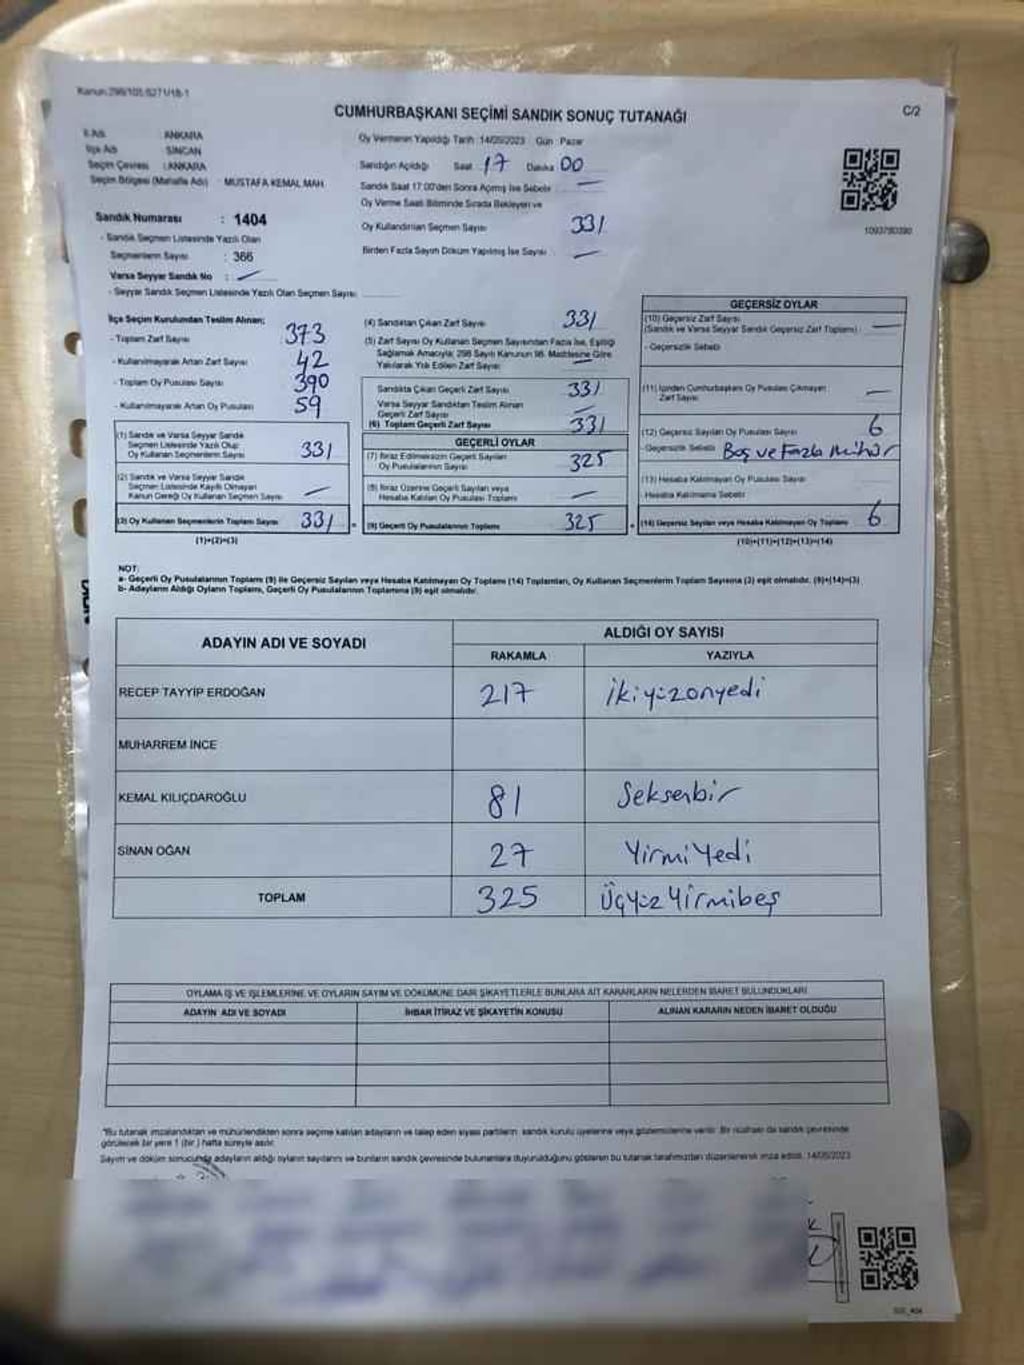 Kanun:298/105.6271/18-1
CUMHURBAŞKANI SEÇİMİ SANDIK SONUÇ TUTANAĞI
C/2
İl Adı ANKARA
İlçe Adı SİNCAN
Seçim Çevresi : ANKARA
Seçim Bölgesi (Mahalle Adı) : MUSTAFA KEMAL MAH.
Sandık Numarası : 1404
- Sandık Seçmen Listesinde Yazılı Olan
Seçmenlerin Sayısı : 366
Varsa Seyyar Sandık No : —
- Seyyar Sandık Seçmen Listesinde Yazılı Olan Seçmen Sayısı
Oy Vermenin Yapıldığı Tarih : 14/05/2023 Gün : Pazar
Sandığın Açıldığı Saat : 17 Dakika 00
Sandık Saat 17:00'den Sonra Açılmış İse Sebebi : —
Oy Verme Saati Bitiminde Sırada Bekleyen ve
Oy Kullandırılan Seçmen Sayısı 331
Birden Fazla Sayım Döküm Yapılmış İse Sayısı : —
1093780390
İlçe Seçim Kurulundan Teslim Alınan;
- Toplam Zarf Sayısı 373
- Kullanılmayarak Artan Zarf Sayısı 42
- Toplam Oy Pusulası Sayısı 390
- Kullanılmayarak Artan Oy Pusulası 59
(1) Sandık ve Varsa Seyyar Sandık
Seçmen Listesinde Yazılı Olup
Oy Kullanan Seçmenlerin Sayısı 331
(2) Sandık ve Varsa Seyyar Sandık
Seçmen Listesinde Kayıtlı Olmayan
Kanun Gereği Oy Kullanan Seçmen Sayısı —
(3) Oy Kullanan Seçmenlerin Toplam Sayısı 331
(1)+(2)=(3)
(4) Sandıktan Çıkan Zarf Sayısı 331
(5) Zarf Sayısı Oy Kullanan Seçmen Sayısından Fazla İse, Eşitliği
Sağlamak Amacıyla; 298 Sayılı Kanunun 98. Maddesine Göre
Yakılarak Yok Edilen Zarf Sayısı —
Sandıkta Çıkan Geçerli Zarf Sayısı 331
Varsa Seyyar Sandıktan Teslim Alınan
Geçerli Zarf Sayısı —
(6) Toplam Geçerli Zarf Sayısı 331
GEÇERLİ OYLAR
(7) İtiraz Edilmeksizin Geçerli Sayılan
Oy Pusulalarının Sayısı 325
(8) İtiraz Üzerine Geçerli Sayılan veya
Hesaba Katılan Oy Pusulası Toplamı —
= (9) Geçerli Oy Pusulalarının Toplamı 325
GEÇERSİZ OYLAR
(10) Geçersiz Zarf Sayısı
(Sandık ve Varsa Seyyar Sandık Geçersiz Zarf Toplamı) —
- Geçersizlik Sebebi
(11) İçinden Cumhurbaşkanı Oy Pusulası Çıkmayan
Zarf Sayısı —
(12) Geçersiz Sayılan Oy Pusulası Sayısı 6
- Geçersizlik Sebebi Boş ve Fazla Mühür
(13) Hesaba Katılmayan Oy Pusulası Sayısı
- Hesaba Katılmama Sebebi
+ (14) Geçersiz Sayılan veya Hesaba Katılmayan Oy Toplamı 6
(10)+(11)+(12)+(13)=(14)
NOT:
a- Geçerli Oy Pusulalarının Toplamı (9) ile Geçersiz Sayılan veya Hesaba Katılmayan Oy Toplamı (14) Toplamları, Oy Kullanan Seçmenlerin Toplam Sayısına (3) eşit olmalıdır. (9)+(14)=(3)
b- Adayların Aldığı Oyların Toplamı, Geçerli Oy Pusulalarının Toplamına (9) eşit olmalıdır.
ADAYIN ADI VE SOYADI
ALDIĞI OY SAYISI
RAKAMLA YAZIYLA
RECEP TAYYİP ERDOĞAN 217 İkiyüzonyedi
MUHARREM İNCE
KEMAL KILIÇDAROĞLU 81 Seksenbir
SİNAN OĞAN 27 Yirmiyedi
TOPLAM 325 Üçyüzyirmibeş
OYLAMA İŞ VE İŞLEMLERİNE VE OYLARIN SAYIM VE DÖKÜMÜNE DAİR ŞİKAYETLERLE BUNLARA AİT KARARLARIN NELERDEN İBARET BULUNDUKLARI
ADAYIN ADI VE SOYADI İHBAR İTİRAZ VE ŞİKAYETİN KONUSU ALINAN KARARIN NEDEN İBARET OLDUĞU
*Bu tutanak imzalandıktan ve mühürlendikten sonra seçime katılan adayların ve talep eden siyasi partilerin, sandık kurulu üyelerine veya gözlemcilerine verilir. Bir nüshası da sandık çevresinde
görülecek bir yere 1 (bir ) hafta süreyle asılır.
Sayım ve döküm sonucunda adayların aldığı oyların sayılarını ve bunların sandık çevresinde bulunanlara duyurulduğunu gösteren bu tutanak tarafımızdan düzenlenerek imza edildi. 14/05/2023